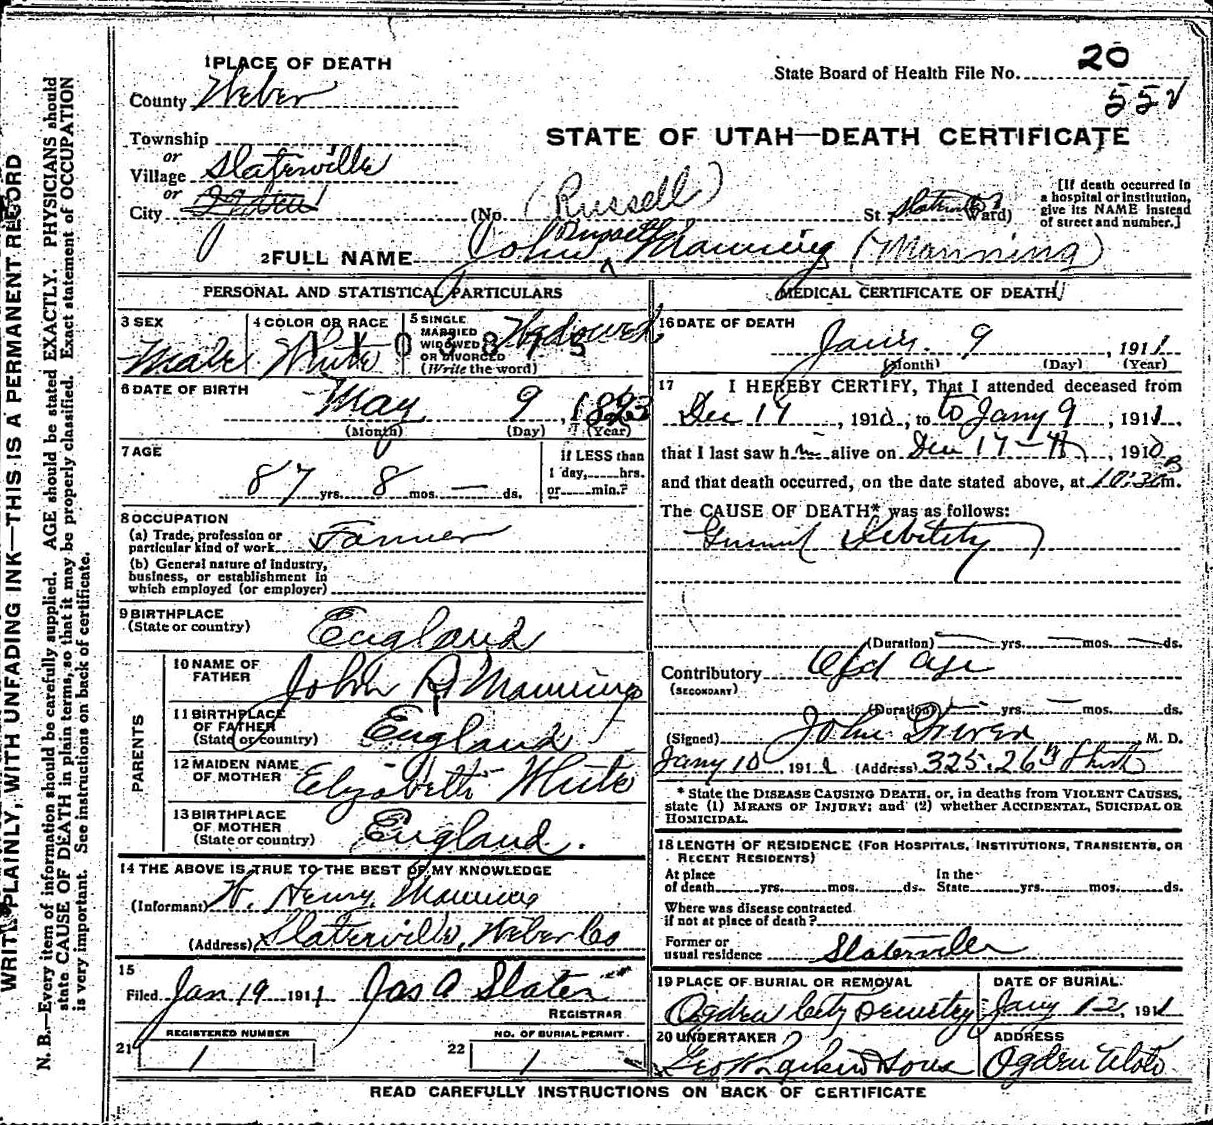 WRITE PLAINLY, WITH UNFADING INK—THIS IS A PERMANENT RECORD
N. B.—Every item of information should be carefully supplied. AGE should be stated EXACTLY. PHYSICIANS should
state CAUSE OF DEATH in plain terms, so that it may be properly classified. Exact statement of OCCUPATION
is very important. See instructions on back of certificate.
1 PLACE OF DEATH
State Board of Health File No. 20
County Weber
552
Township
STATE OF UTAH—DEATH CERTIFICATE
or
Village Slaterville
or
City Ogden
(No. (Russell) St. Ward)
[If death occurred in
a hospital or institution,
give its NAME instead
of street and number.]
2 FULL NAME John Russell Manning (Manning)
PERSONAL AND STATISTICAL PARTICULARS
3 SEX Male
4 COLOR OR RACE White
5 SINGLE
MARRIED
WIDOWED
OR DIVORCED
(Write the word) Widowed
6 DATE OF BIRTH
May 9, 1823
(Month) (Day) (Year)
7 AGE
87 yrs. 8 mos. — ds.
If LESS than
1 day, hrs.
or min.?
8 OCCUPATION
(a) Trade, profession or
particular kind of work Farmer
(b) General nature of Industry,
business, or establishment in
which employed (or employer)
9 BIRTHPLACE
(State or country) England
PARENTS
10 NAME OF
FATHER John R Manning
11 BIRTHPLACE
OF FATHER
(State or country) England
12 MAIDEN NAME
OF MOTHER Elizabeth White
13 BIRTHPLACE
OF MOTHER
(State or country) England.
14 THE ABOVE IS TRUE TO THE BEST OF MY KNOWLEDGE
(Informant) W. Henry Manning
(Address) Slaterville, Weber Co
15
Filed Jan 19 1911 Jas A Slater
REGISTRAR
REGISTERED NUMBER
21 1
NO. OF BURIAL PERMIT.
22 1
MEDICAL CERTIFICATE OF DEATH
16 DATE OF DEATH
Jany. 9, 1911
(Month) (Day) (Year)
17 I HEREBY CERTIFY, That I attended deceased from
Dec 17, 1910, to to Jany 9, 1911,
that I last saw him alive on Dec 17-th, 1910
and that death occurred, on the date stated above, at 10:30 m.
The CAUSE OF DEATH* was as follows:
Debility
(Duration) — yrs. — mos. — ds.
Contributory Old Age
(SECONDARY)
(Duration) — yrs. — mos. — ds.
(Signed) John Driver M. D.
Jany 10 1911 (Address) 325. 26th Street
* State the DISEASE CAUSING DEATH, or, in deaths from VIOLENT CAUSES,
state (1) MEANS OF INJURY; and (2) whether ACCIDENTAL, SUICIDAL OR
HOMICIDAL.
18 LENGTH OF RESIDENCE (FOR HOSPITALS, INSTITUTIONS, TRANSIENTS, OR
RECENT RESIDENTS)
At place
of death yrs. mos. ds.
In the
State yrs. mos. ds.
Where was disease contracted
if not at place of death?
Former or
usual residence Slaterville
19 PLACE OF BURIAL OR REMOVAL
Ogden City Cemetery
DATE OF BURIAL
Jany 12, 1911
20 UNDERTAKER
Geo W. Larkin & Sons
ADDRESS
Ogden Utah
READ CAREFULLY INSTRUCTIONS ON BACK OF CERTIFICATE